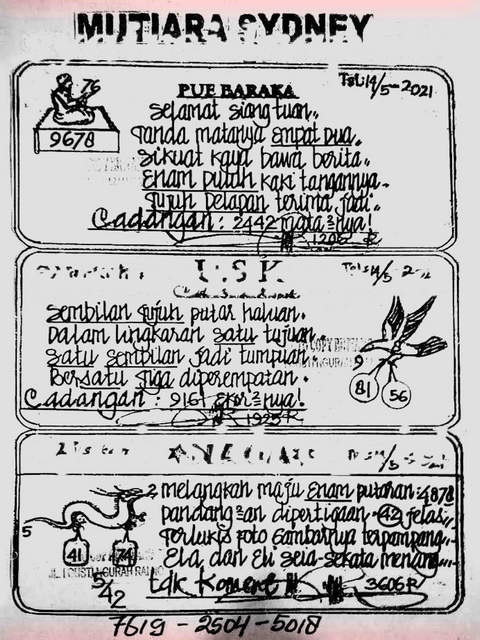 MUTIARA SYDNEY
76
9678
PUE BARAKA
Tgl: 14/5-2021
Selamat siang tuan..
Tanda matanya empat dua.
Sikuat kaya bawa berita..
Enam puluh kaki tangannya.
Tujuh delapan terima jadi.
Cadangan : 2442 mata²nya!
1206 R
U.S.K
Sembilan tujuh putar haluan.
Dalam lingkaran satu tujuan.
Satu sembilan jadi tumpuan.
Bersatu tiga diperempatan.
Cadangan : 9161 Ekor²nya!
1925 R
9
81
56
2 melangkah maju enam putaran: 4878
pandang²an dipertigaan 42 jelas
Terlukis foto gambarnya terpampang
Ela dan Eli seia-sekata menang...
tdk Koment !!
3606 R
5
41
74
542
7619 - 2504 - 5018